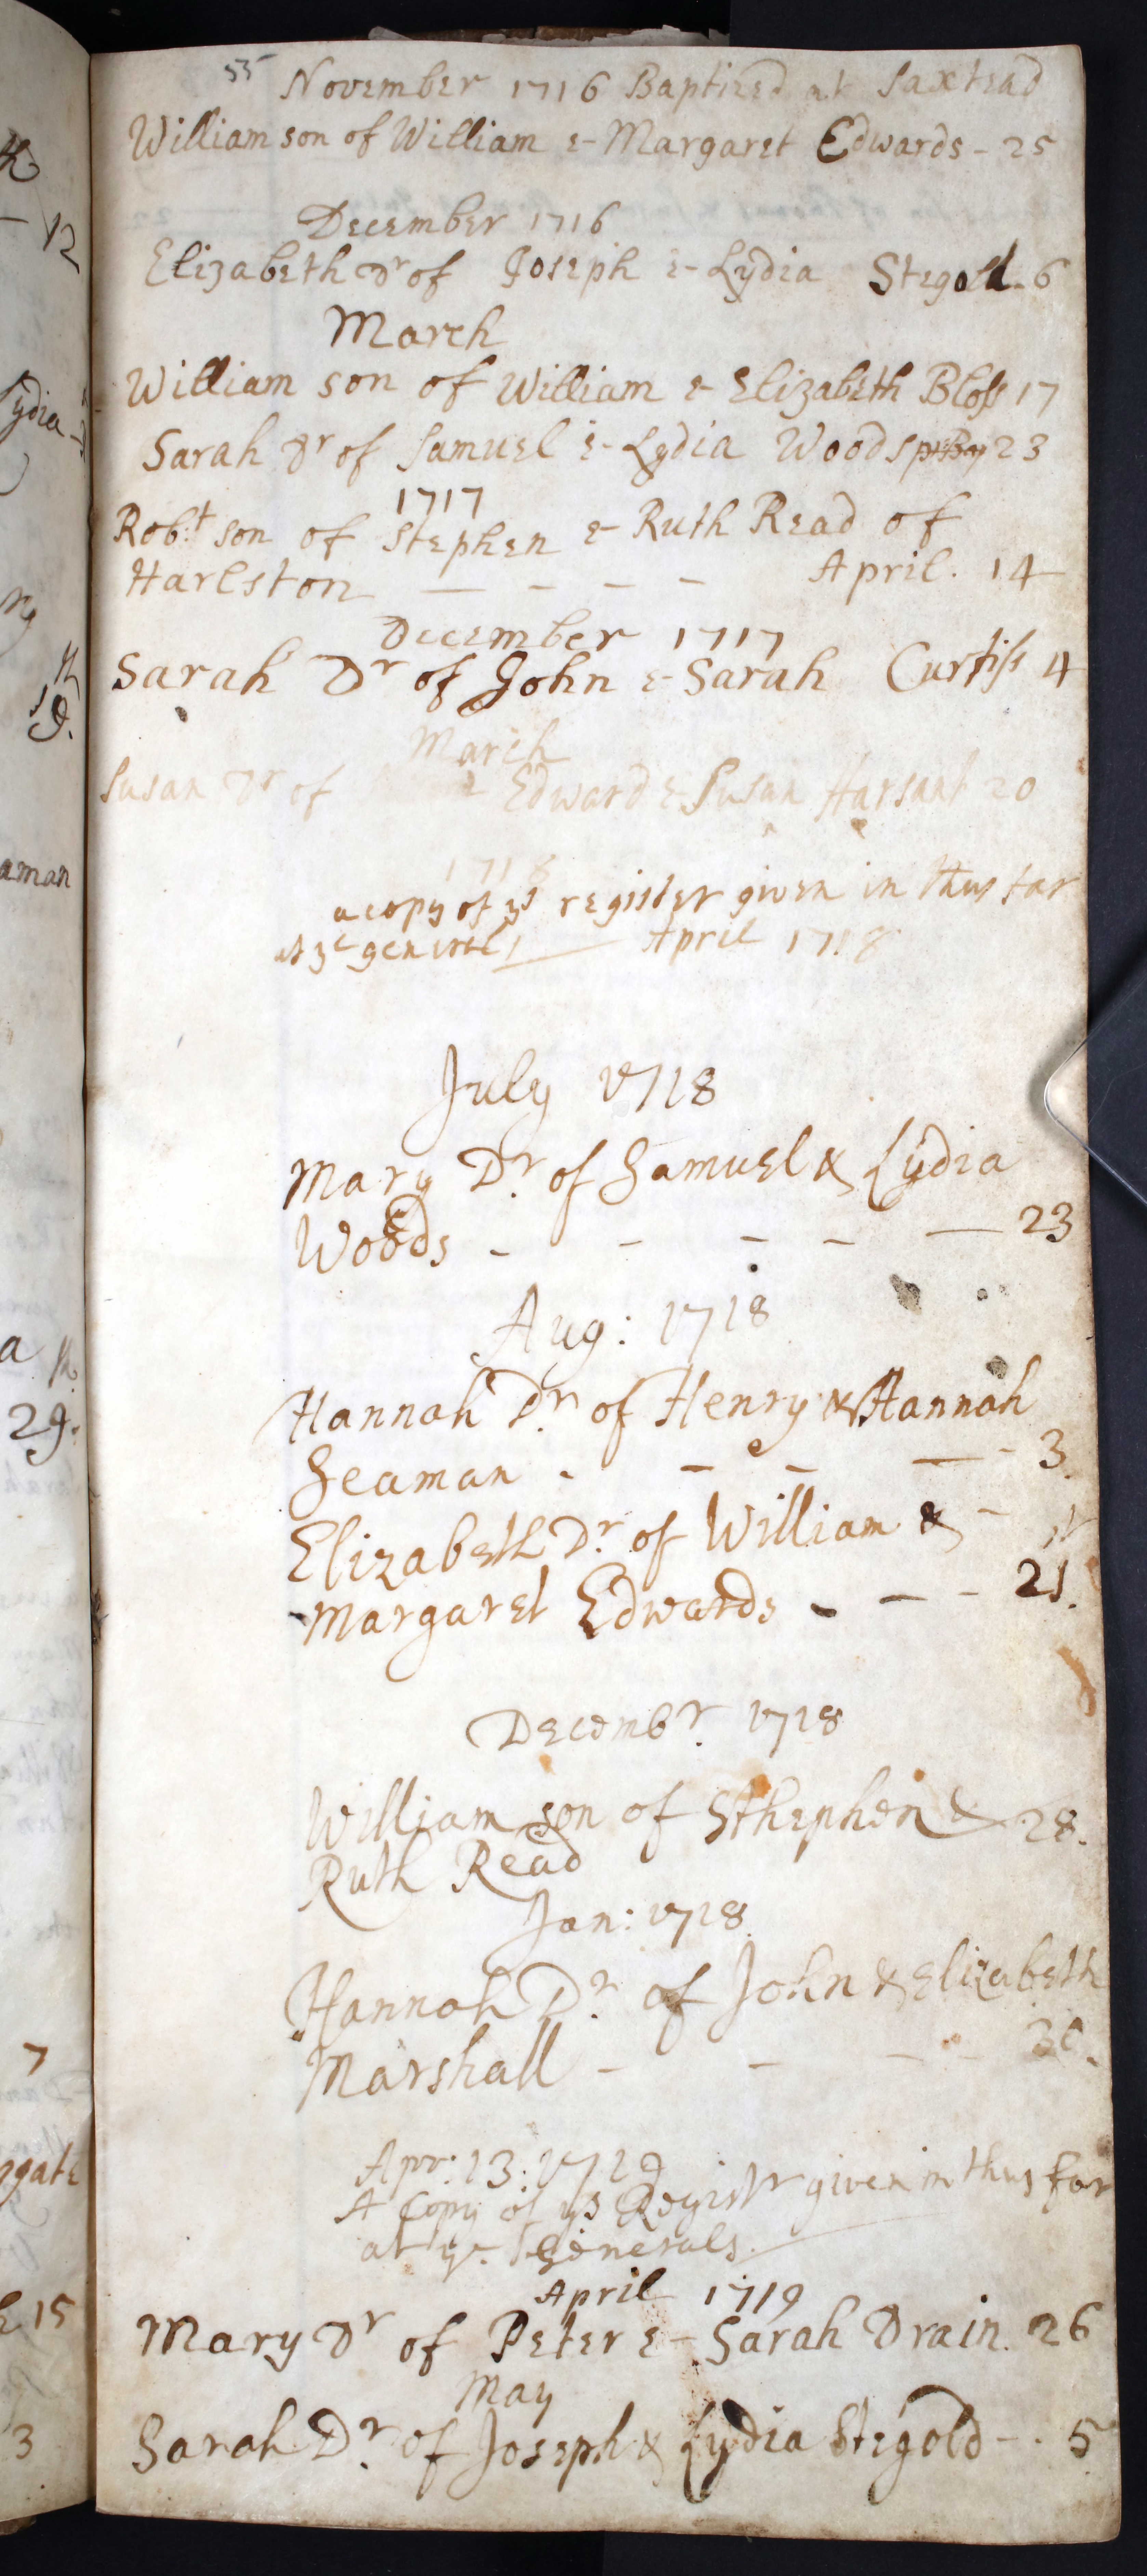 55
November 1716 Baptized at Saxtead
William son of William & Margaret Edwards - 25
December 1716
Elizabeth Dr of Joseph & Lydia Stegold - 6
March
William son of William & Elizabeth Bloss 17
Sarah Dr of Samuel & Lydia Woods 23
1717
Robt son of Stephen & Ruth Read of
Harlston — - - - - April. 14
December 1717
Sarah Dr of John & Sarah Curtiss 4
March
Susan Dr of Edward & Susan Harsant 20
1718
a copy of ys register given in thus far
at ye generall — April 1718
July 1718
Mary Dr. of Samuel & Lydia
Woods - - - - — 23
Aug: 1718
Hannah Dr. of Henry & Hannah
Seaman - - - — - 3.
Elizabeth Dr. of William & -
Margaret Edwards - - - 21.
Decembr. 1718
William son of Sthephen & 28.
Ruth Read
Jan: 1718.
Hannah Dr. of John & Elizabeth
Marshall - - - - 30.
Apr: 13: 1719
A Copy of ys Registr given in thus far
at ye. Generals.
April 1719
Mary Dr of Peter & Sarah Drain. 26
May
Sarah Dr. of Joseph & Lydia Stegold - . 5